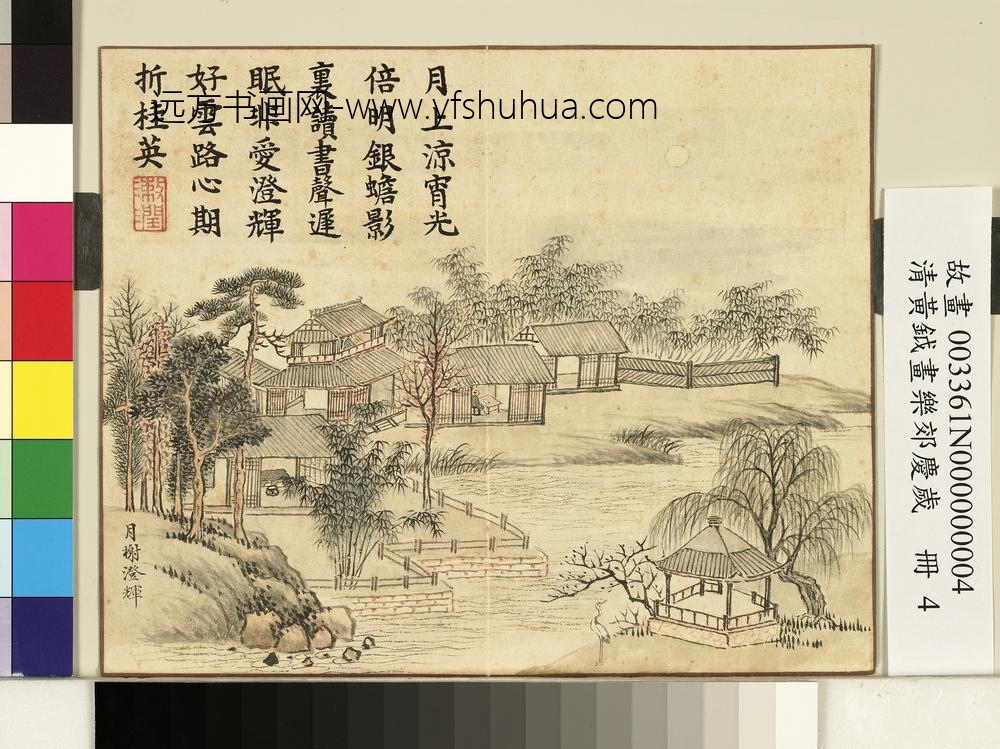 月上涼宵光
倍明銀蟾影
裏讀書聲遲
眠非愛澄輝
好雲路心期
折桂英
远方书画网-www.yfshuhua.com
月榭澄輝
故畫 003361N000000004
清黃鉞畫樂郊慶歲 冊 4